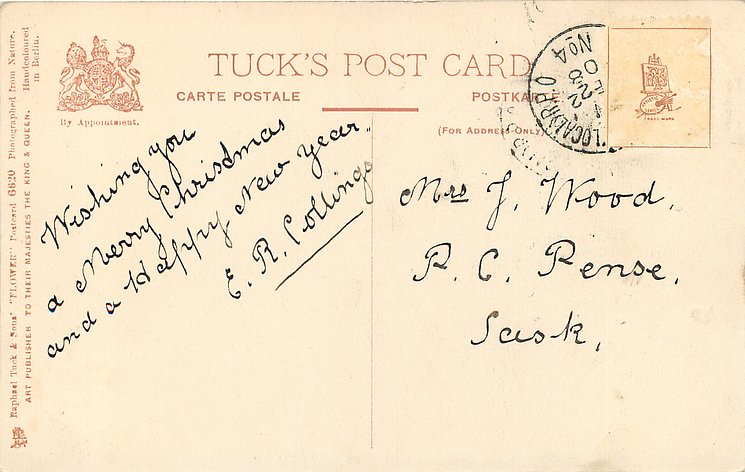 Raphael Tuck & Sons' "FLOWER" Postcard 6620 Photographed from Nature.
ART PUBLISHER TO THEIR MAJESTIES THE KING & QUEEN. Handcoloured
in Berlin.
By Appointment.
TUCK'S POST CARD
CARTE POSTALE
POSTKARTE
(FOR ADDRESS ONLY)
TRADE MARK
No 4
LOCAL
Wishing you
a Merry Christmas
and a Happy New Year.
E. R. Collings
Mrs J. Wood,
R. C. Pense,
Sask,